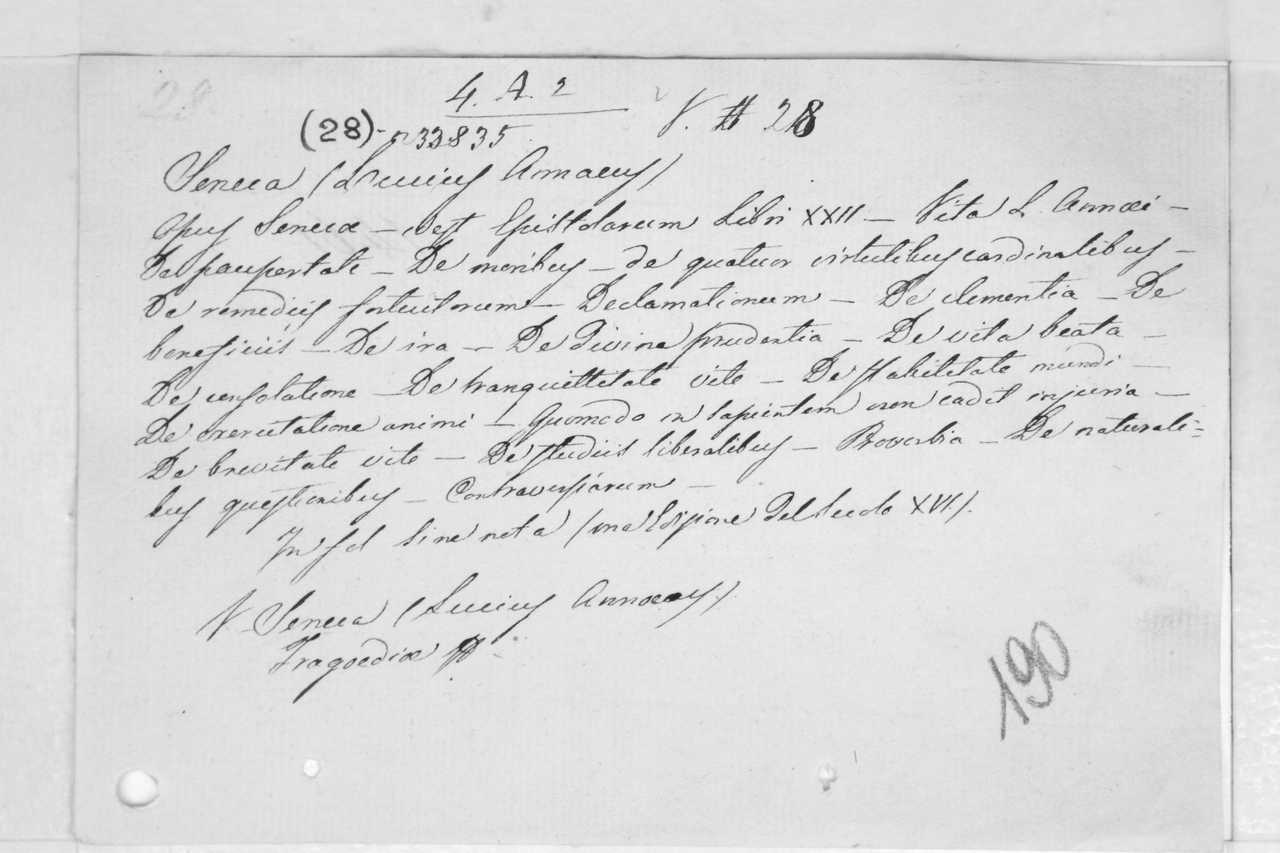 28
4. A. 2
V. # 28
(28) - n 33835
Seneca (Lucius Annaeus)
Opus Senecæ — id est Epistolarum Libri XXII — Vita L. Annæi —
De paupertate — De moribus — de quatuor virtutibus cardinalibus —
De remediis fortuitorum — Declamationum — De clementia — De
beneficiis — De ira — De Divina prudentia — De vita beata —
De consolatione — De tranquillitate vite — De stabilitate mundi —
De exercitatione animi — Quomodo in sapientem non cadit injuria —
De brevitate vite — De studiis liberalibus — Proverbia — De naturali=
bus questionibus — Contraversiarum —
In fol sine nota (una Edizione del Secolo XVI).
V. Seneca (Lucius Annaeus)
Tragoediæ #
190